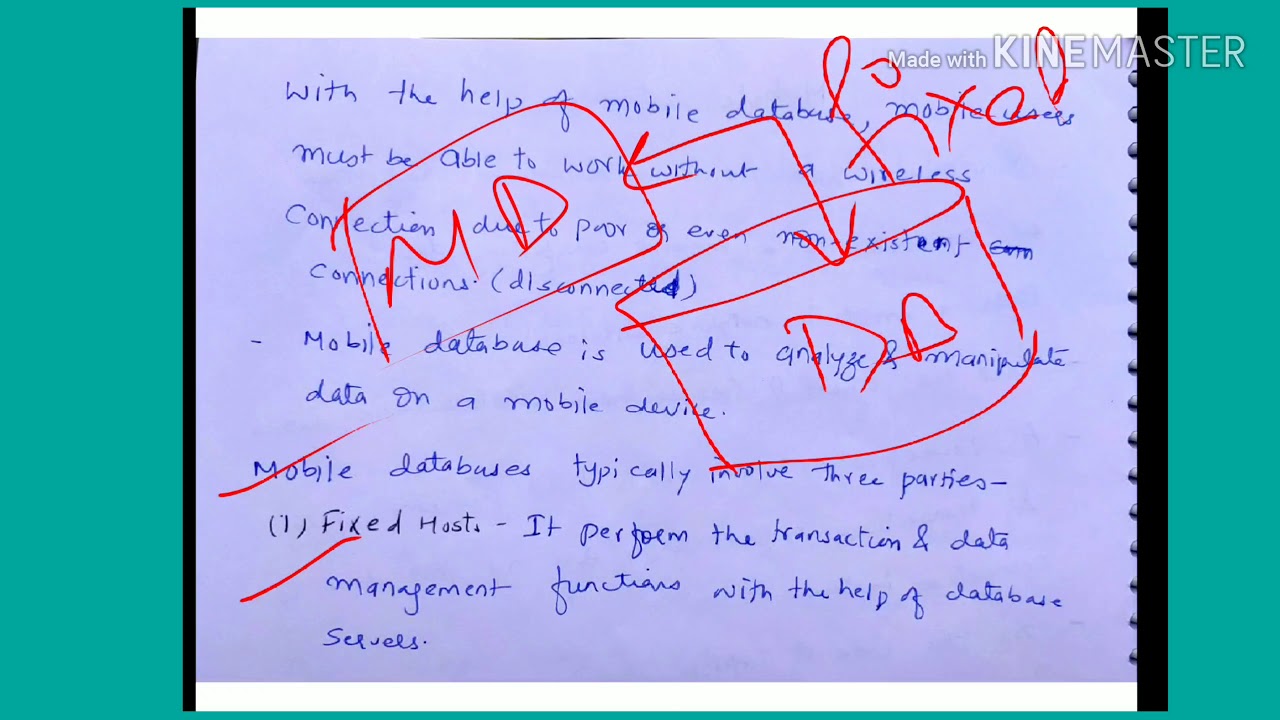 Made with KINEMASTER
With the help of mobile database, mobile users
must be able to work without a wireless
Connection due to poor or even non-existent
Connections. (disconnected)
- Mobile database is used to analyze & manipulate
data on a mobile device.
Mobile databases typically involve three parties-
(1) Fixed Hosts - It perform the transaction & data
management functions with the help of database
servers.
MD
DD